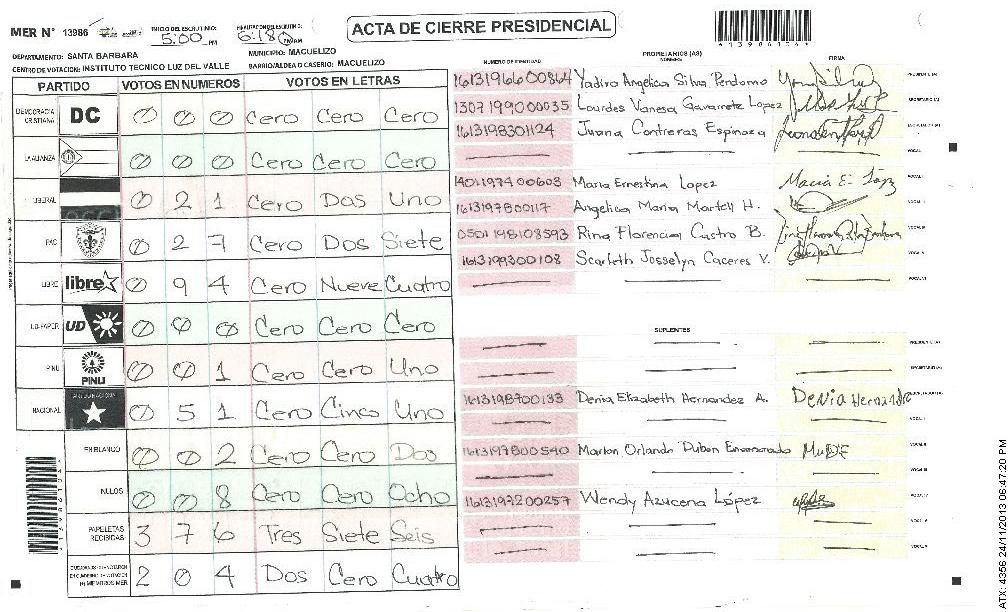 ACTA DE CIERRE PRESIDENCIAL
MER N° 13986
INICIO DEL ESCRUTINIO: 5:00 PM
6:18 PM
DEPARTAMENTO: SANTA BARBARA
MUNICIPIO: MACUELIZO
CENTRO DE VOTACION: INSTITUTO TECNICO LUZ DEL VALLE
BARRIO/ALDEA O CASERIO: MACUELIZO
PARTIDO VOTOS EN NUMEROS VOTOS EN LETRAS
DEMOCRACIA CRISTIANA DC 0 0 0 Cero Cero Cero
LA ALIANZA 0 0 0 Cero Cero Cero
LIBERAL 0 2 1 Cero Dos Uno
PAC 0 2 7 Cero Dos Siete
LIBRE libre 0 9 4 Cero Nueve Cuatro
UD-FAPER UD 0 0 0 Cero Cero Cero
PINU PINU 0 0 1 Cero Cero Uno
NACIONAL 0 5 1 Cero Cinco Uno
EN BLANCO 0 0 2 Cero Cero Dos
NULOS 0 0 8 Cero Cero Ocho
PAPELETAS RECIBIDAS: 3 7 6 Tres Siete Seis
2 0 4 Dos Cero Cuatro
NUMERO DE IDENTIDAD PROPIETARIOS (AS) NOMBRE FIRMA
1613196600864 Yadira Angelica Silva Perdomo
1307199000035 Lourdes Vanesa Gavarrete Lopez
1613198301124 Juana Contreras Espinoza
1401197400603 Maria Ernestina Lopez Maria E. López
1613197800117 Angelica Maria Martell H.
0501198108593 Rina Florencia Castro B.
1613199300108 Scarleth Josselyn Caceres V.
SUPLENTES
1613198700133 Denia Elizabeth Hernandez A. Denia Hernandez
1613197800540 Marlon Orlando Dubon MODE
1613197200257 Wendy Azucena López
ATX: 4356 24/11/2013 06:47:20 PM